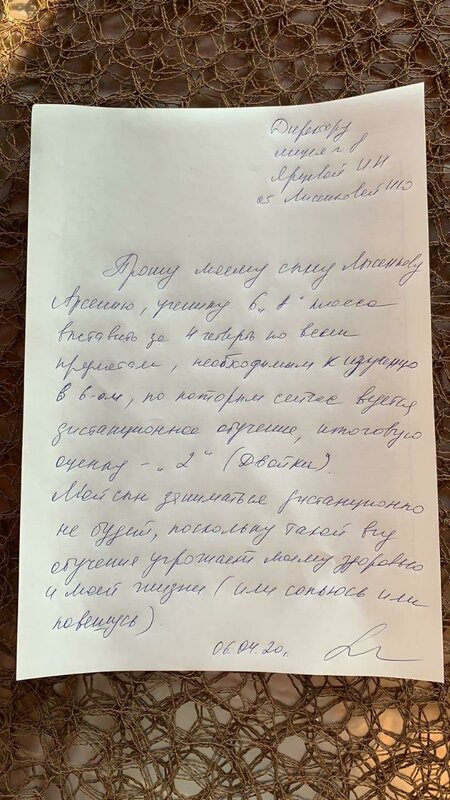 Директору
лицея № 8
Ярцевой И Н
от Лысенковой Ю
Прошу моему сыну Лысенкову
Арсению, ученику 6 „А" класса
выставить за 4 четверть по всем
предметам, необходимым к изучению
в 6-ом, по которым сейчас ведется
дистанционное обучение, итоговую
оценку - „2" (Двойки).
Мой сын заниматься дистанционно
не будет, поскольку такой вид
обучения угрожает моему здоровью
и моей жизни (или сопьюсь или
повешусь).
06.04.20г.